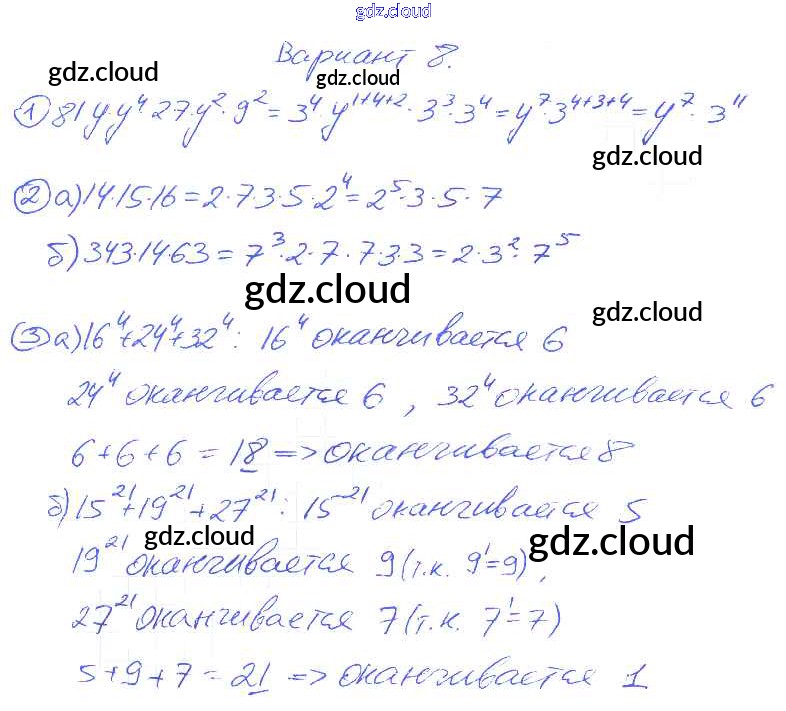 gdz.cloud
Вариант 8.
gdz.cloud gdz.cloud
① 81y·y⁴·27·y²·9² = 3⁴·y¹⁺⁴⁺²·3³·3⁴ = y⁷·3⁴⁺³⁺⁴ = y⁷·3¹¹
gdz.cloud
② а) 14·15·16 = 2·7·3·5·2⁴ = 2⁵·3·5·7
б) 343·14·63 = 7³·2·7·7·3·3 = 2·3²·7⁵
gdz.cloud gdz.cloud
③ а) 16⁴+24⁴+32⁴: 16⁴ оканчивается 6
24⁴ оканчивается 6, 32⁴ оканчивается 6
6+6+6 = 18 => оканчивается 8
б) 15²¹+19²¹+27²¹: 15²¹ оканчивается 5
gdz.cloud gdz.cloud
19²¹ оканчивается 9 (т.к. 9¹=9),
27²¹ оканчивается 7 (т.к. 7¹=7)
5+9+7 = 21 => оканчивается 1